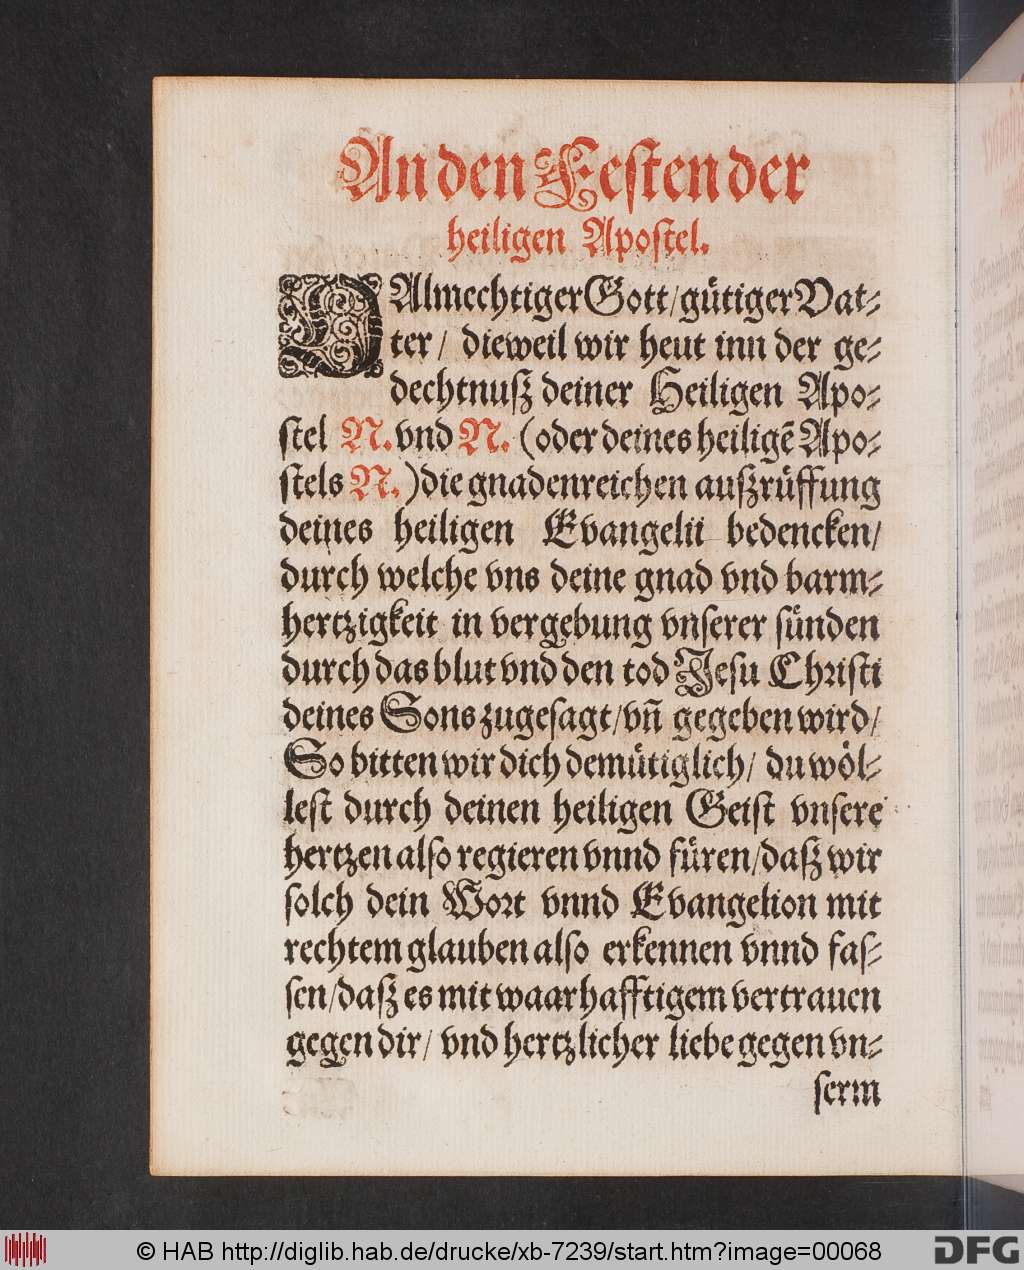 An den Festen der
heiligen Apostel.
O Almechtiger Gott / gütiger Vat⸗
ter / dieweil wir heut inn der ge⸗
dechtnuß deiner Heiligen Apo⸗
stel N. vnd N. (oder deines heiligẽ Apo⸗
stels N.) die gnadenreichen außrüffung
deines heiligen Evangelii bedencken /
durch welche vns deine gnad vnd barm⸗
hertzigkeit in vergebung vnserer sünden
durch das blut vnd den tod Jesu Christi
deines Sons zugesagt / vñ gegeben wird /
So bitten wir dich demütiglich / du wöl⸗
lest durch deinen heiligen Geist vnsere
hertzen also regieren vnnd füren / daß wir
solch dein Wort vnnd Evangelion mit
rechtem glauben also erkennen vnnd fas⸗
sen / daß es mit waarhafftigem vertrauen
gegen dir / vnd hertzlicher liebe gegen vn⸗
serm
© HAB http://diglib.hab.de/drucke/xb-7239/start.htm?image=00068
DFG